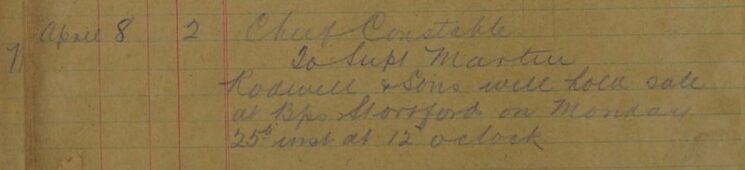 7 April 8 2 Chief Constable
To Supt Martin
Rodwell & Sons will hold sale
at Bps Stortford on Monday
25th inst at 12 oclock